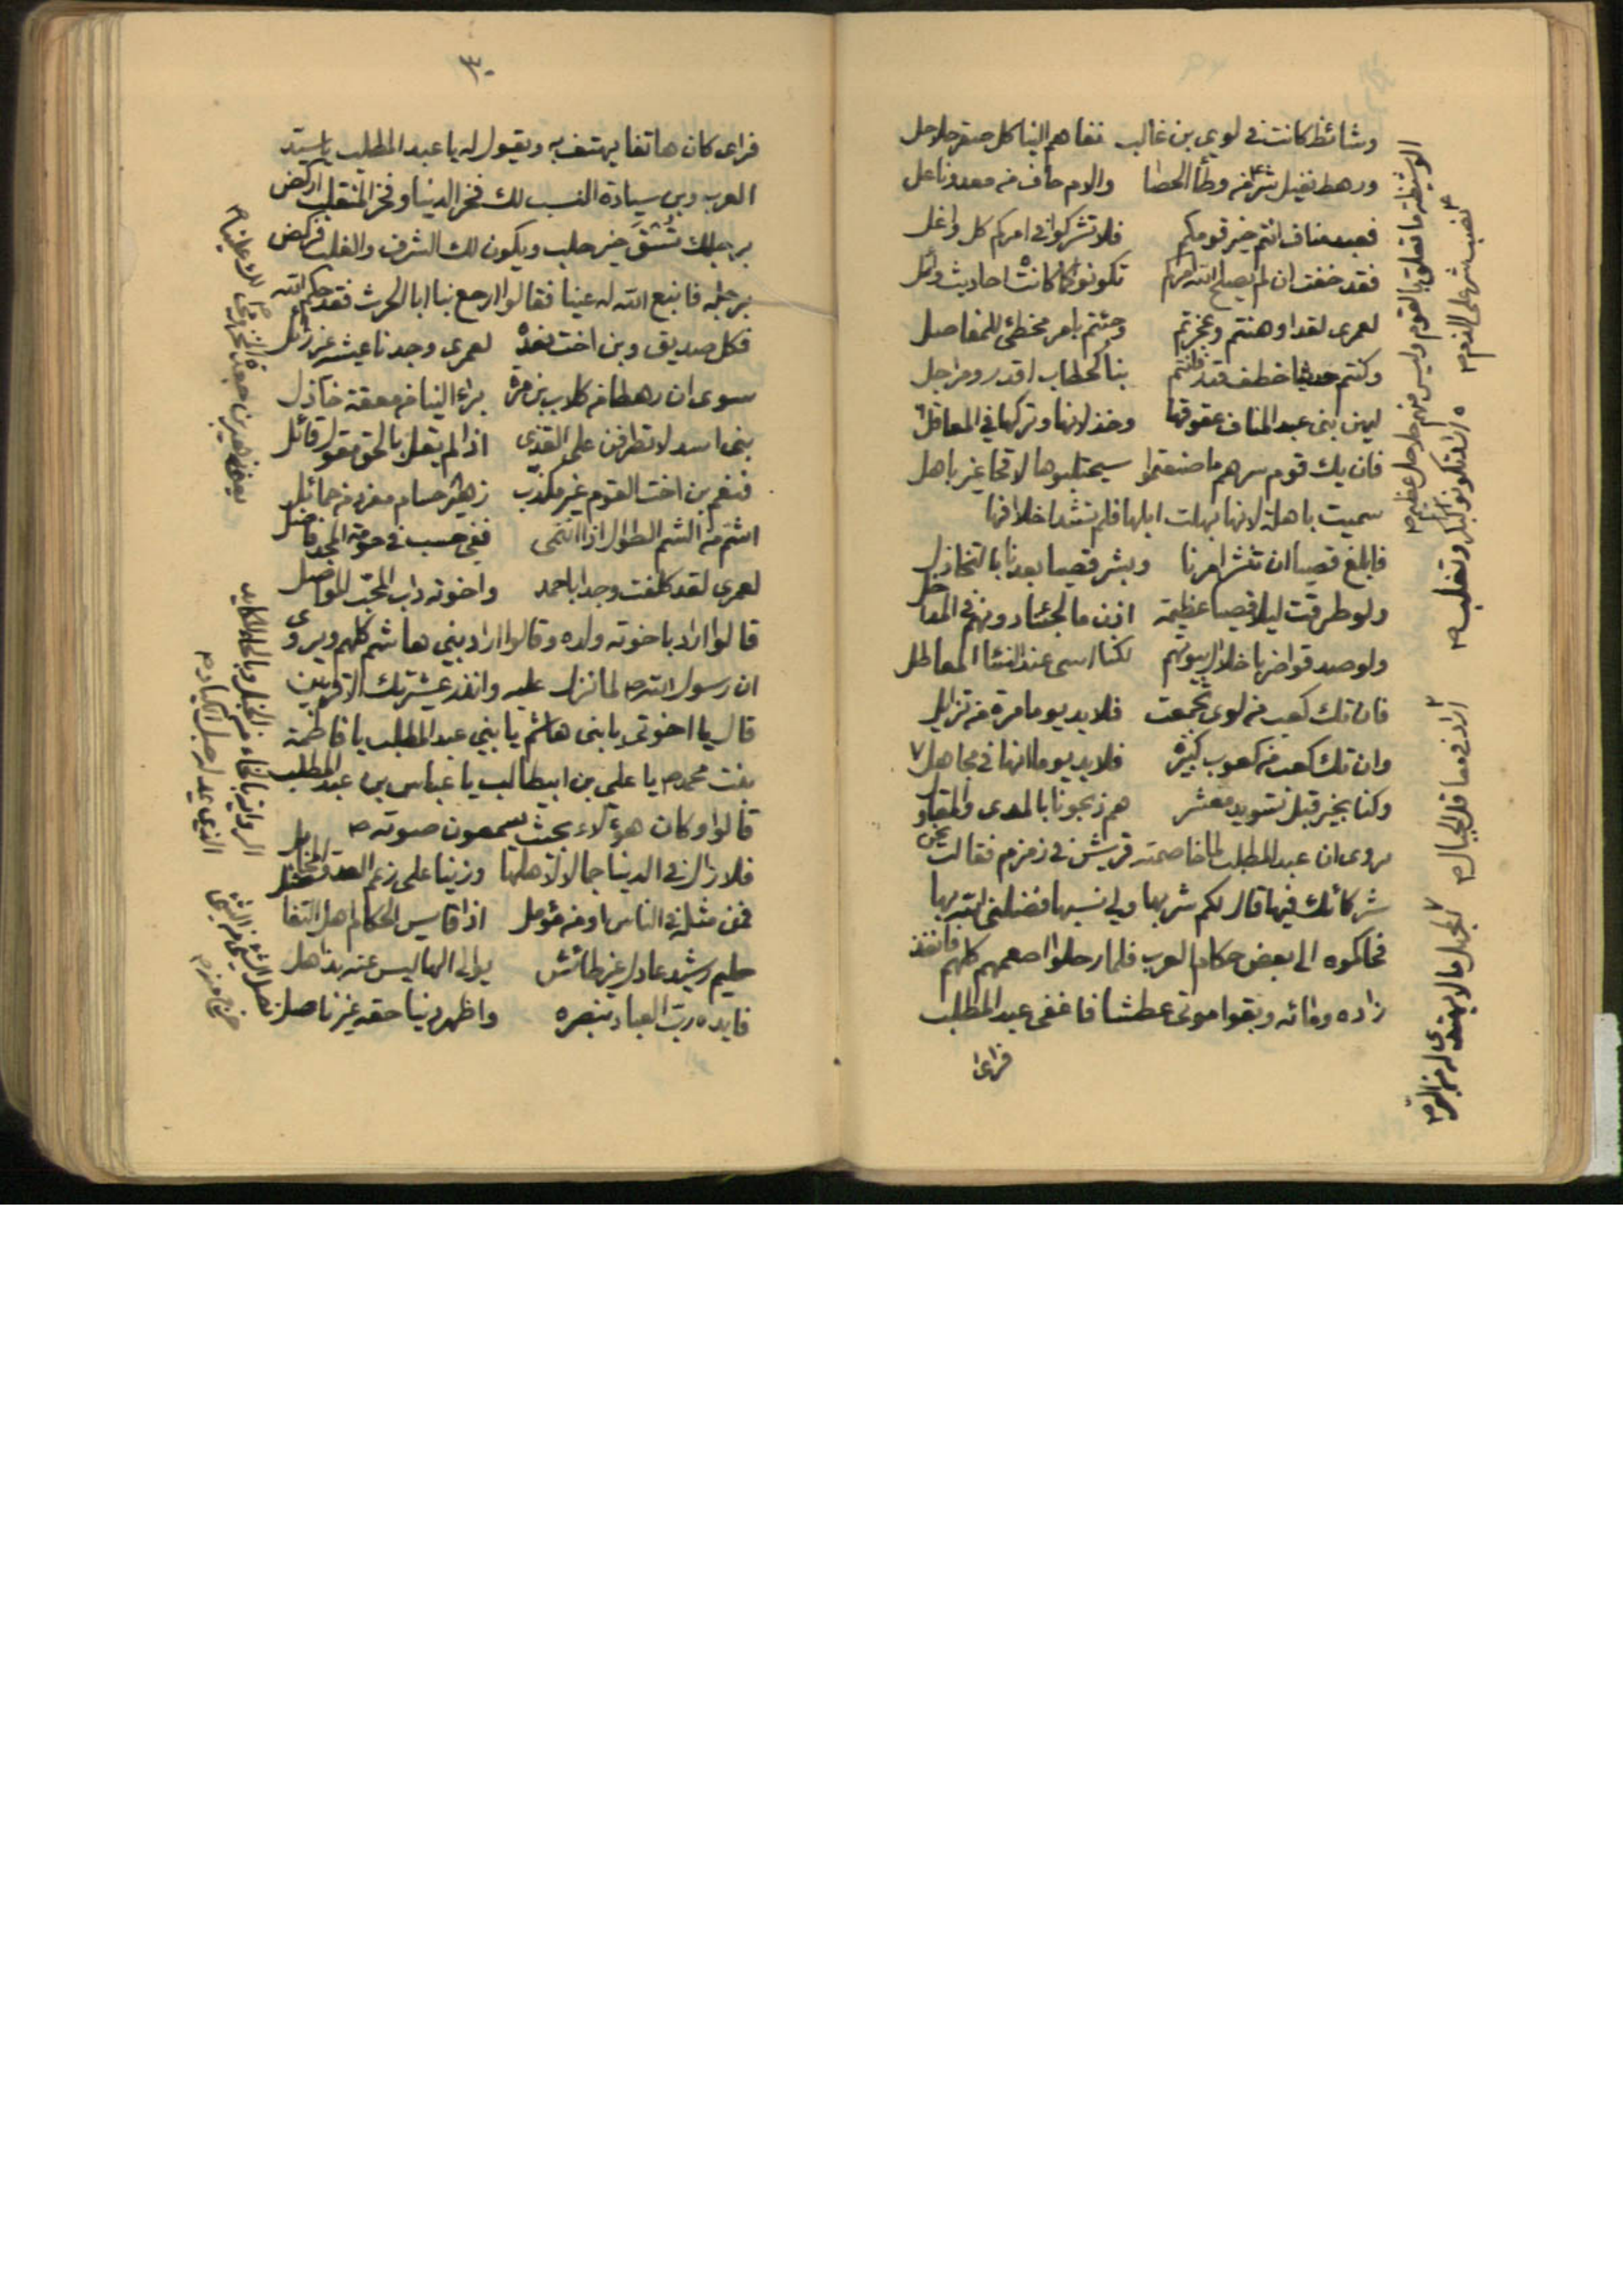 وشائظ كانت في لوي بن غالب نفاهم الينا كل صقر حلاحل
ورهط نفيل شر من وطأ الحصا والام حاف من معد وناعل
فعبد مناف انتم خير قومكم فلا تشركوا في امركم كل واغل
فقد خفت ان لم يصلح الله امركم تكونوا كما كانت احاديث وائل
لعمرى لقد اوهنتم وعجزتم وجئتم بامر مخطئ للمفاصل
وكنتم حديثا حطب قدر فانتم بنا كحطاب اقدر ومراجل
ليهن بنى عبد المناف عقوقها وخذلانها وتركها في المعاقل
فان يك قوم سرهم ما صنعتموا سيحتلبوها لاقحا غير باهل
سميت باهلة لانها بهلت ابلها فلم تشد اخلافها
فابلغ قصيا ان تنشر امرنا وبشر قصيا بعدنا بالتخاذل
ولو طرقت ليلا قصيا عظيمة اذن ما لجئنا دونهم في المداخل
ولو صدقوا ضربا خلال بيوتهم لكنا اسى عند النساء المعاطل
فان تك كعب من لوى تجمعت فلا بد يوما مرة من تزايل
وان تك كعب من كعوب كثيرة فلا بد يوما انها في مجاهل
وكنا بخير قبل تسويد معشر هم ذبحونا بالمدى والمقاول
يروى ان عبد المطلب لما خاصمته قريش في زمزم فقالت نحن
شركائك فيها قال لكم شربها ولى نسبها فضلنى بها ربها
فحاكموه الى بعض حكام العرب فلما رحلوا اصعهم كلهم فانفذ
زاده ومائه وبقوا موتى عطشا فاغفى عبد المطلب
فراى
الوشيظة ما تعلق بالقوم وليس منهم حلاحل عظيم
نصب شر على الذم
اراد تكونوا كبكر وتغلب
اراد في معاقل الجبال
المجهل ما لا يهتدى له من البر
٣٠
فراى كان هاتفا يهتف به ويقول له يا عبد المطلب يا سيد
العرب وبن سيادة النسب لك فخر الدنيا وفخر المنقلب اركض
برجلك تسق خير حلب ويكون لك الشرف والغلب فركض
برجله فانبع الله له عينا فقالوا ارجع بنا ابا الحرث فقد حكم الله
فكل صديق وبن اخت نعده لعمرى وجدنا عيشه غير زائل
سوى ان رهطا من كلاب بن مرة براء الينا من معقة خاذل
بنى اسد لا تطرفن على القذى اذا لم يقل بالحق مقول قائل
فنعم بن اخت القوم غير مكذب زهير حسام مفرد من حمائل
اشم من الشم الطوال اذا انتمى ففى حسب في حومة المجد فاضل
لعمرى لقد كلفت وجدا باحمد واخوته داب المحب المواصل
قالوا اراد باخوته ولده وقالوا اراد بنى هاشم كلهم ويروى
ان رسول الله ص لما نزل عليه وانذر عشيرتك الاقربين
قال يا اخوتى يا بنى هاشم يا بنى عبد المطلب يا فاطمة
بنت محمد ص يا على بن ابيطالب يا عباس بن عبد المطلب
قالوا وكان هؤلاء بحيث يسمعون صوته ص
فلا زال في الدنيا جمالا لاهلها وزينا على رغم العدو المخابل
فمن مثله في الناس او من مؤمل اذا قايس الحكام اهل التفاضل
حليم رشيد عادل غير طائش يوالى الها ليس عنه بذاهل
فايده رب العباد بنصره واظهر دينا حقه غير ناصل
الرواية بالخاء من الخبل وبالحاء المكايد
الذى يمد لرجل الكياد
نصل الشئ من الشئ
خرج منه